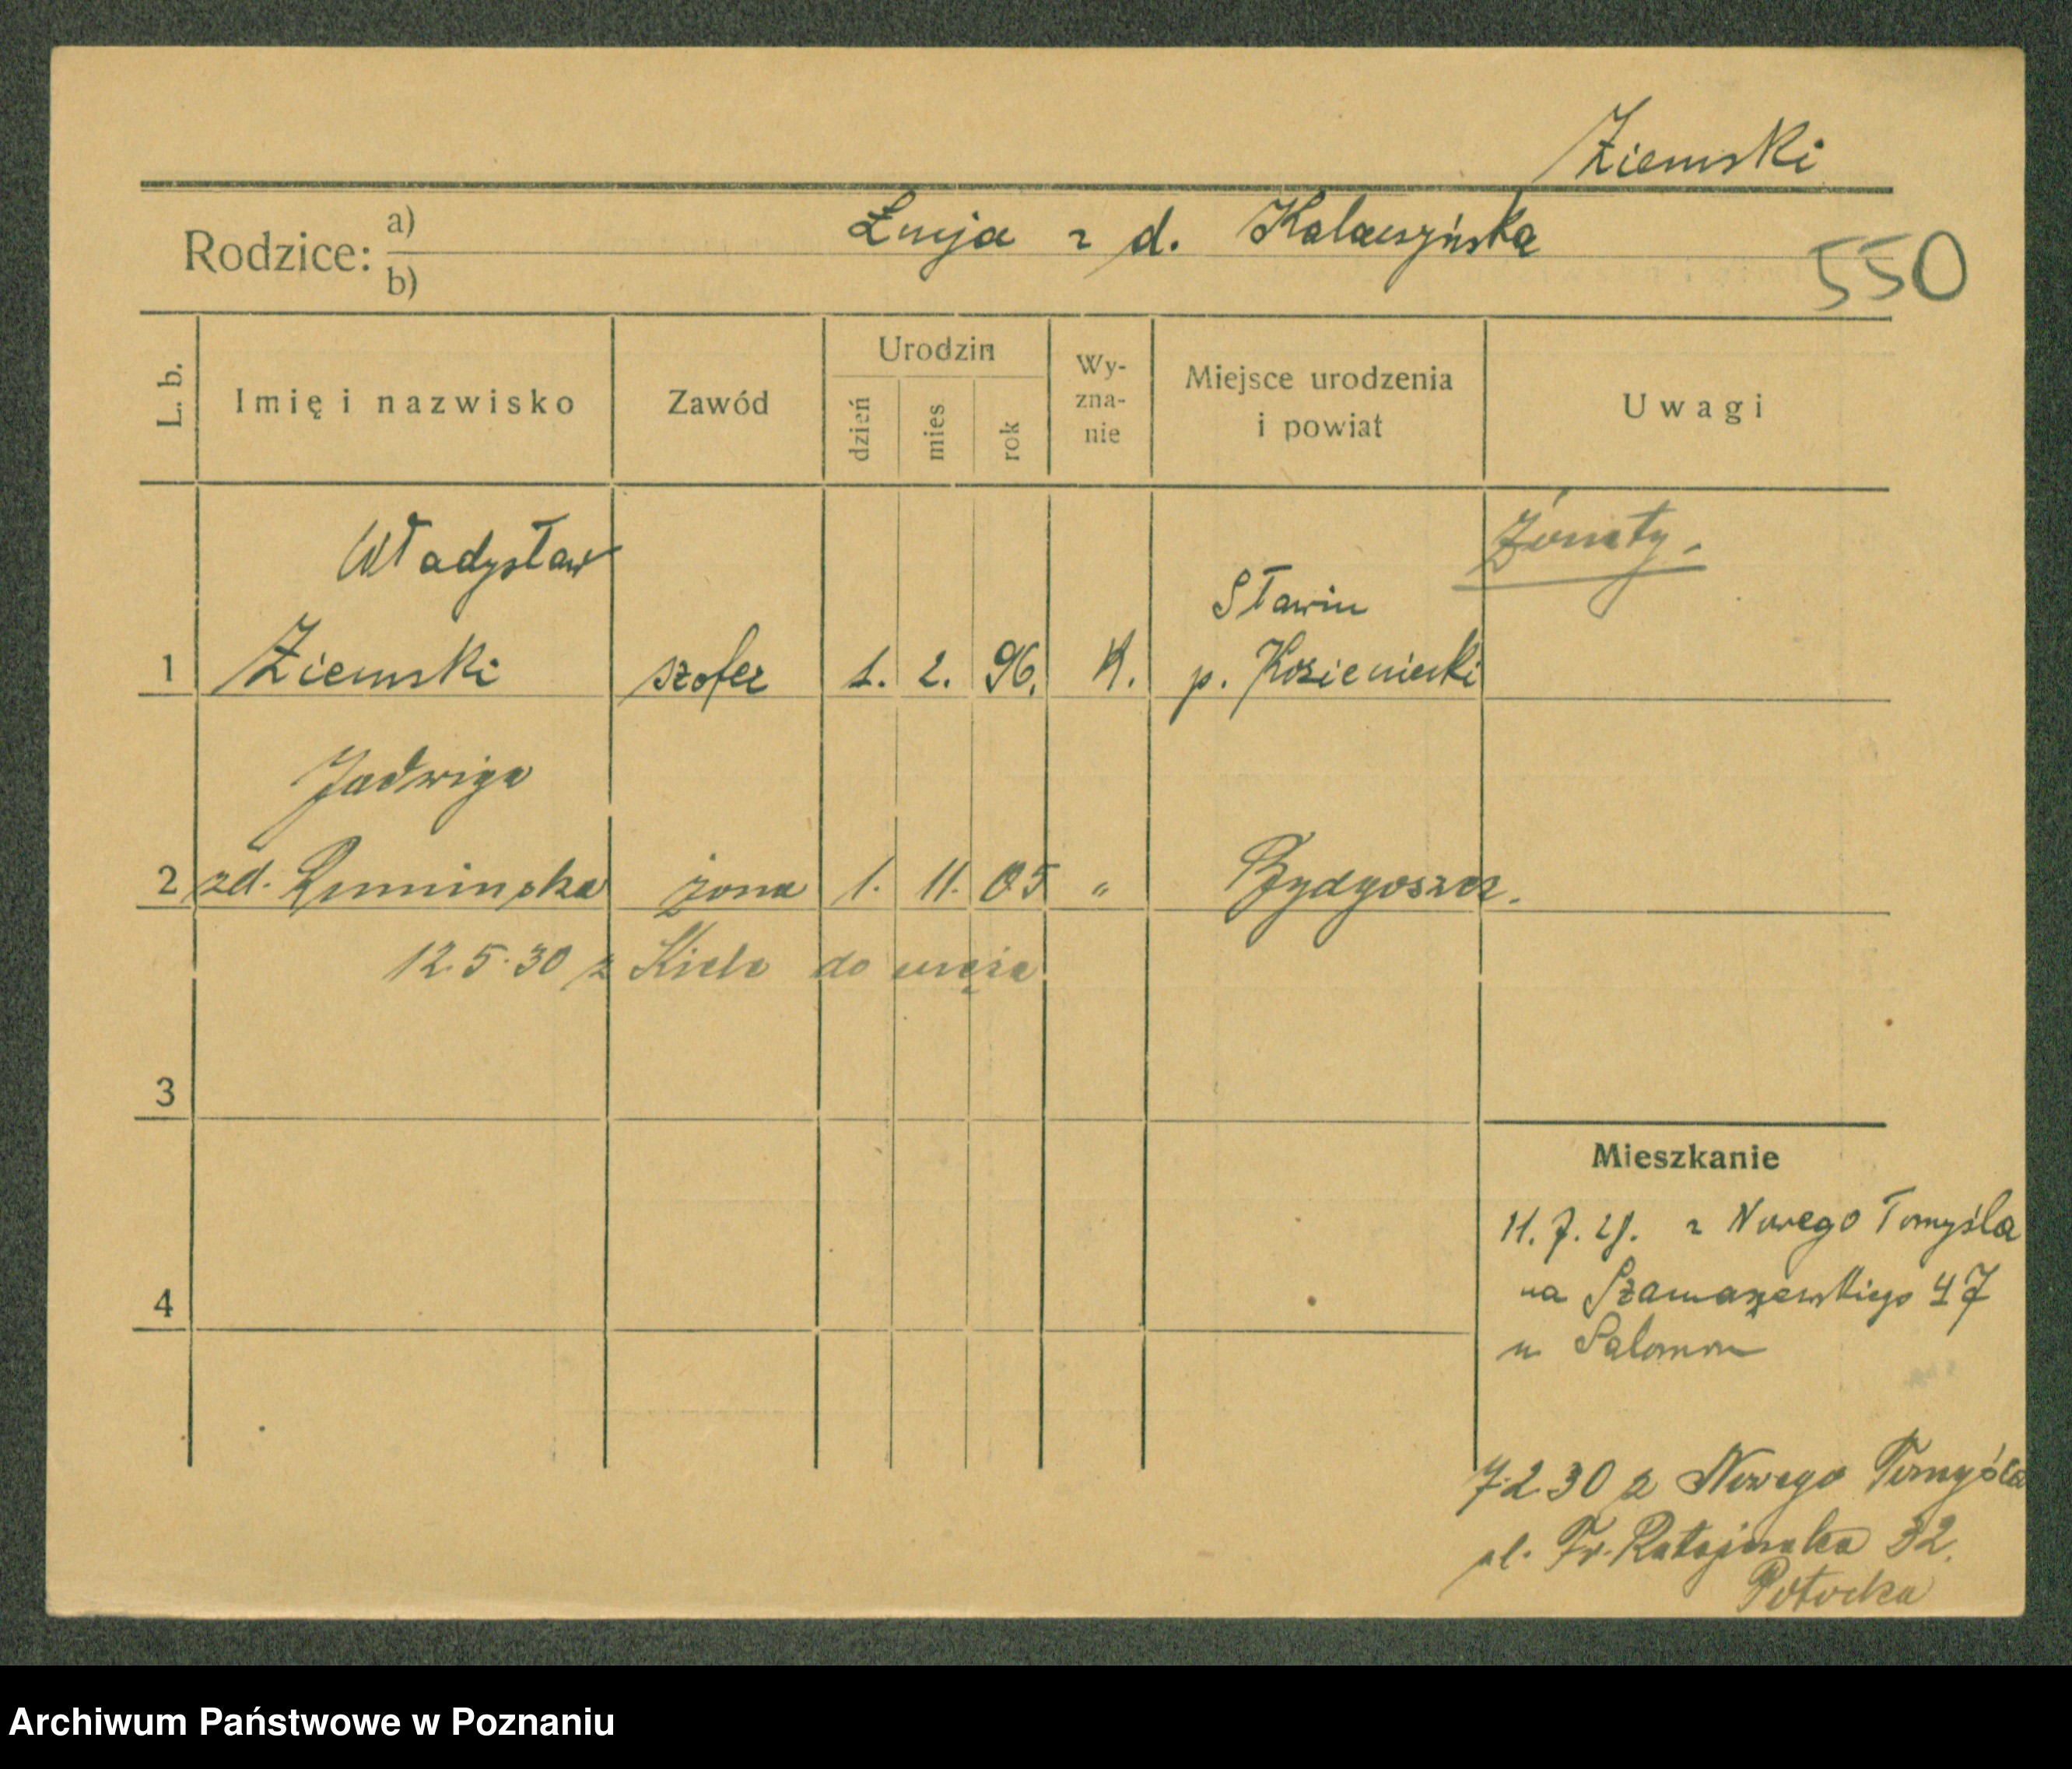 Ziemski
Rodzice: a) Łucja z d.
b)
550
L. b.
Imię i nazwisko
Zawód
Urodzin
dzień
mies
rok
Wy-
zna-
nie
Miejsce urodzenia
i powiat
Uwagi
Władysław
Żonaty.
Sławin
1 Ziemski szofer 1. 2. 96. K. p. Kozienicki
Jadwiga
2 zd. żona 1. 11. 05 " Bydgoszcz.
12.5.30 z Kielc do męża
3
Mieszkanie
z Nowego Tomyśla
4
na Szamarzewskiego 47
u Salomon
7.2.30 z Nowego Tomyśla
pl. Fr. Ratajczaka 32.
Potocka
Archiwum Państwowe w Poznaniu